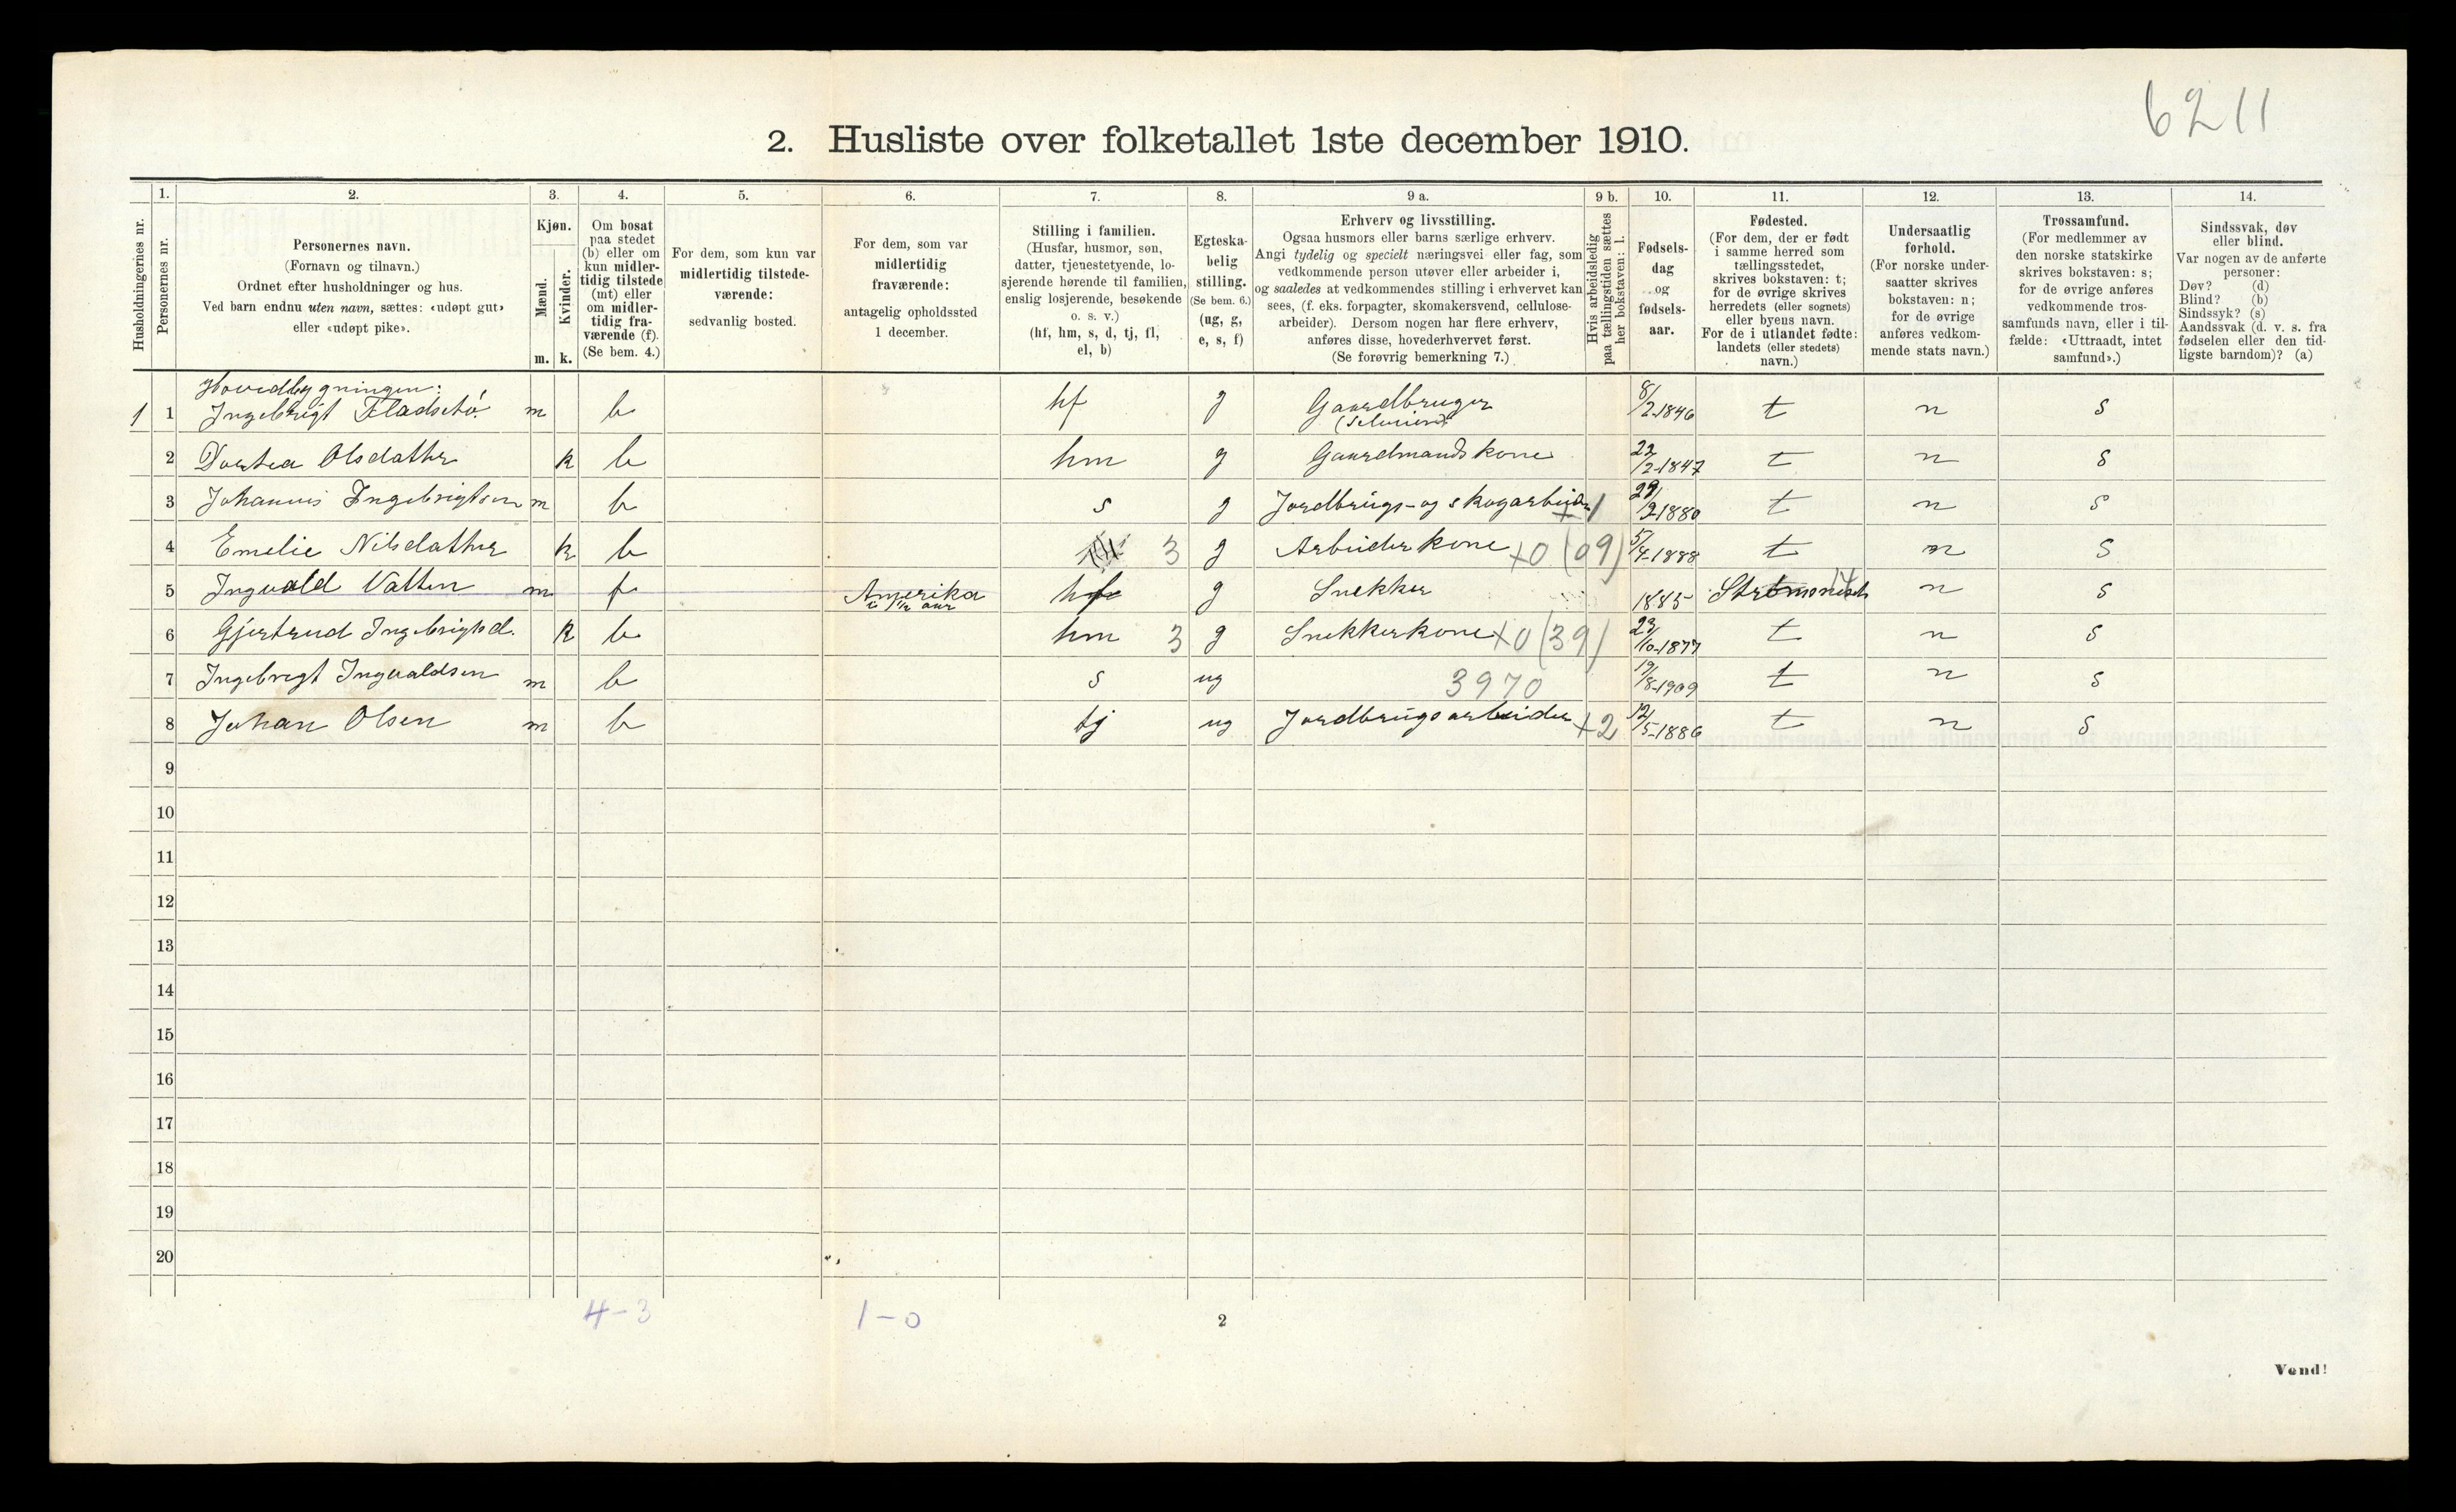 6211
2. Husliste over folketallet 1ste december 1910.
Husholdningernes nr.
1.
Personernes nr.
2.
Personernes navn.
(Fornavn og tilnavn.)
Ordnet efter husholdninger og hus.
Ved barn endnu uten navn, sættes: «udøpt gut»
eller «udøpt pike».
3.
Kjøn.
Mænd.
Kvinder.
m. k.
4.
Om bosat
paa stedet
(b) eller om
kun midler-
tidig tilstede
(mt) eller
om midler-
tidig fra-
værende (f).
(Se bem. 4.)
5.
For dem, som kun var
midlertidig tilstede-
værende:
sedvanlig bosted.
6.
For dem, som var
midlertidig
fraværende:
antagelig opholdssted
1 december.
7.
Stilling i familien.
(Husfar, husmor, søn,
datter, tjenestetyende, lo-
sjerende hørende til familien,
enslig losjerende, besøkende
o. s. v.)
(hf, hm, s, d, tj, fl,
el, b)
8.
Egteska-
belig
stilling.
(Se bem. 6.)
(ug, g,
e, s, f)
9 a.
Erhverv og livsstilling.
Ogsaa husmors eller barns særlige erhverv.
Angi tydelig og specielt næringsvei eller fag, som
vedkommende person utøver eller arbeider i,
og saaledes at vedkommendes stilling i erhvervet kan
sees, (f. eks. forpagter, skomakersvend, cellulose-
arbeider). Dersom nogen har flere erhverv,
anføres disse, hovederhvervet først.
(Se forøvrig bemerkning 7.)
9 b.
Hvis arbeidsledig
paa tællingstiden sættes
her bokstaven: l.
10.
Fødsels-
dag
og
fødsels-
aar.
11.
Fødested.
(For dem, der er født
i samme herred som
tællingsstedet,
skrives bokstaven: t;
for de øvrige skrives
herredets (eller sognets)
eller byens navn.
For de i utlandet fødte:
landets (eller stedets)
navn.)
12.
Undersaatlig
forhold.
(For norske under-
saatter skrives
bokstaven: n;
for de øvrige
anføres vedkom-
mende stats navn.)
13.
Trossamfund.
(For medlemmer av
den norske statskirke
skrives bokstaven: s;
for de øvrige anføres
vedkommende tros-
samfunds navn, eller i til-
fælde: «Uttraadt, intet
samfund».)
14.
Sindssvak, døv
eller blind.
Var nogen av de anførte
personer:
Døv? (d)
Blind? (b)
Sindssyk? (s)
Aandssvak (d. v. s. fra
fødselen eller den tid-
ligste barndom)? (a)
Hovedbygningen:
1 1 Ingebrigt Fladsetø m b hf g Gaardbruger (Selveiend) 8/2-1846 t n s
2 Dortea Olsdatter k b hm g Gaardmandskone 22/2-1847 t n s
3 Johannes Ingebrigtsen m b s g Jordbrugs- og skogarbeider +1 29/2-1880 t n s
4 Emelie Nilsdatter k b 3 g Arbeiderkone +0 (09) 5/4-1888 t n s
5 Ingvald Vatten m f Amerika i 1/2 aar hf g Snekker 1885 n s
6 Gjertrud Ingebrigtsd. k b hm 3 g Snekkerkone +0 (39) 23/10-1877 t n s
7 Ingebrigt Ingvaldsen m b s ug 3970 19/8-1909 t n s
8 Johan Olsen m b tj ug Jordbrugsarbeider +2 12/5-1886 t n s
9
10
11
12
13
14
15
16
17
18
19
20
4-3 1-0 2
Vend!